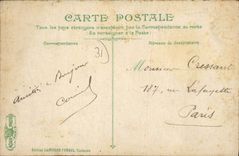 CARTE POSTALE
Tous les pays étrangers n'acceptent pas la Correspondance au recto
(Se renseigner à la Poste)
Correspondance
Adresse du destinataire
31
Monsieur Cressant
187, rue Lafayette
Paris
Amitiés &
Edition